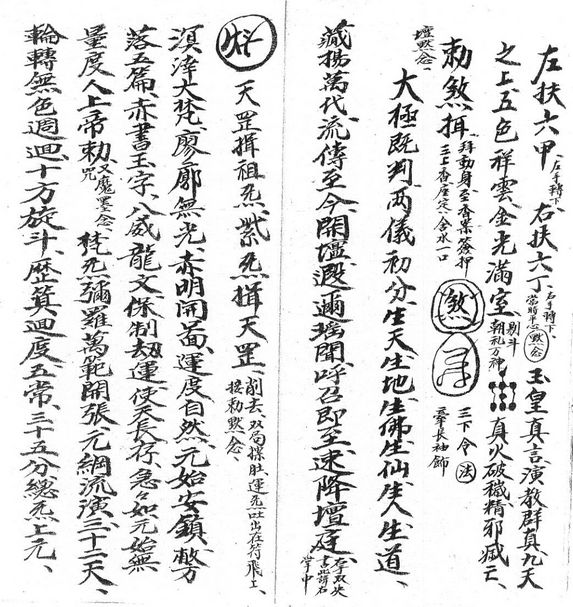 左扶六甲、左手轉下右扶六丁、右手轉下、當時平心默念玉皇真言演教群真、九天
之上五色祥雲金光滿室、剔斗朝礼万神真火破穢精邪滅亡、
敕煞揖拜動身至香案簽押三上香座定、含水一口煞三下令法牽長袖飾
壇默念
大極既判、两儀初分、生天生地生佛生仙生人生道、
藏揚萬代流傳至今、開壇遐邇瑤聞、呼召即至、速降壇庭、掌中
天罡揖祖炁、紫炁揖天罡、削去双句搽肚運炁吐出在符飛上、接勅默念、
溟涬大梵、廖廓無光、赤明開啚、運度自然、元始安鎮、敷
落五篇、赤書玉字、八威龍文、保制劫運、使天長存、急々如元始無
量度人上帝勅、咒又魔墨念梵炁彌羅萬範開張、元綱流演、三十二天、
輪轉無色週迴十方旋斗、歷箕迴度五常、三十五分總炁上元、